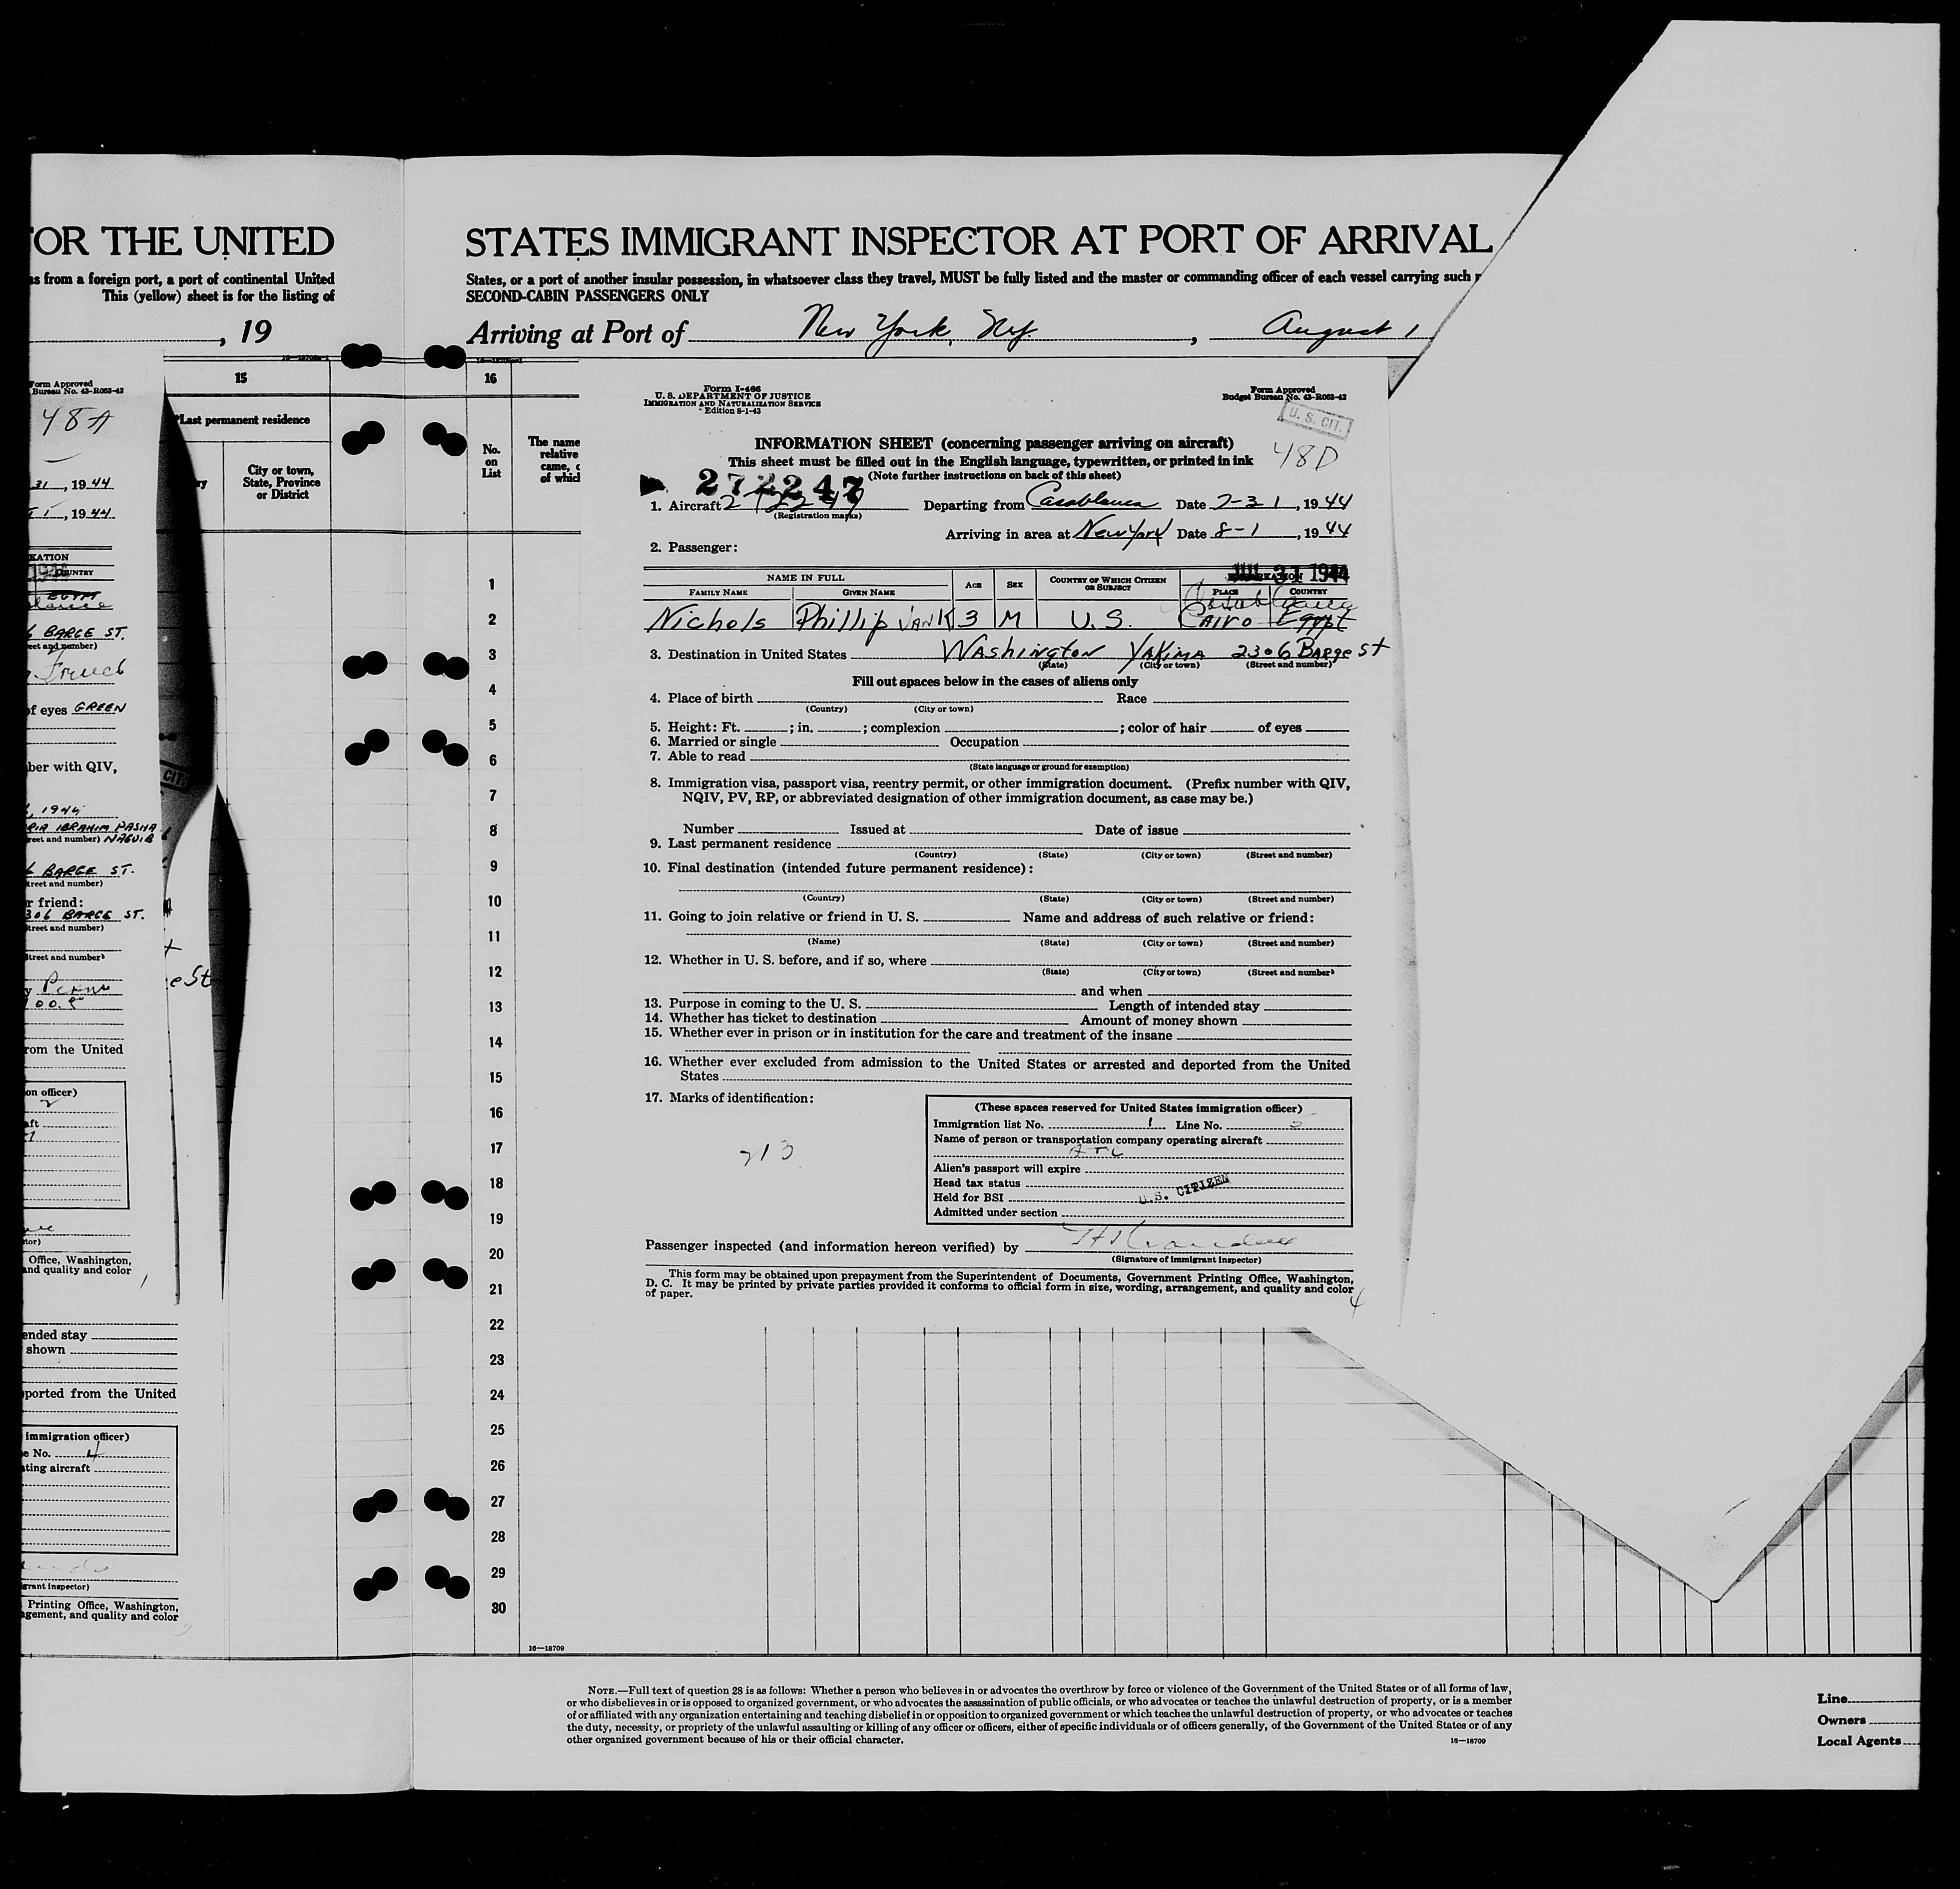 OR THE UNITED
as from a foreign port, a port of continental United
This (yellow) sheet is for the listing of
, 19
Form Approved
Bureau No. 43-R063-42
48A
31, 1944
1, 1944
15
Last permanent residence
City or town,
State, Province
or District
KATION
COUNTRY
EGYPT
6 BARGE ST.
eet and number)
French
of eyes GREEN
ber with QIV,
CIT.
, 1944
RIA IBRAHIM PASHA
reet and number) NAGUIB
6 BARGE ST.
treet and number)
r friend:
306 BARGE ST.
treet and number)
treet and number)
e St
00.
rom the United
on officer)
aft
tor)
Office, Washington,
and quality and color
ended stay
shown
ported from the United
immigration officer)
e No. 4
ting aircraft
grant inspector)
Printing Office, Washington,
gement, and quality and color
STATES IMMIGRANT INSPECTOR AT PORT OF ARRIVAL
States, or a port of another insular possession, in whatsoever class they travel, MUST be fully listed and the master or commanding officer of each vessel carrying such
SECOND-CABIN PASSENGERS ONLY
Arriving at Port of New York, N.Y. , August 1
16
No.
on
List
The name
relative
came, o
of which
1
2
3
4
5
6
7
8
9
10
11
12
13
14
15
16
17
18
19
20
21
22
23
24
25
26
27
28
29
30
16—18709
Form I-466
U. S. DEPARTMENT OF JUSTICE
IMMIGRATION AND NATURALIZATION SERVICE
Edition 8-1-43
Form Approved
Budget Bureau No. 43-R063-42
U. S. CIT.
48D
INFORMATION SHEET (concerning passenger arriving on aircraft)
This sheet must be filled out in the English language, typewritten, or printed in ink
(Note further instructions on back of this sheet)
272247
1. Aircraft 272247 Departing from Casablanca Date 7-31, 1944
(Registration marks)
Arriving in area at New York Date 8-1, 1944
2. Passenger:
JUL 31 1944
NAME IN FULL AGE SEX COUNTRY OF WHICH CITIZEN OR SUBJECT EMBARKATION
FAMILY NAME GIVEN NAME PLACE COUNTRY
Casablanca
Nichols Phillip Van K 3 M U.S. Cairo Egypt
3. Destination in United States Washington Yakima 2306 Barge St
(State) (City or town) (Street and number)
Fill out spaces below in the cases of aliens only
4. Place of birth Race
(Country) (City or town)
5. Height: Ft. ; in. ; complexion ; color of hair of eyes
6. Married or single Occupation
7. Able to read
(State language or ground for exemption)
8. Immigration visa, passport visa, reentry permit, or other immigration document. (Prefix number with QIV,
NQIV, PV, RP, or abbreviated designation of other immigration document, as case may be.)
Number Issued at Date of issue
9. Last permanent residence
(Country) (State) (City or town) (Street and number)
10. Final destination (intended future permanent residence):
(Country) (State) (City or town) (Street and number)
11. Going to join relative or friend in U. S. Name and address of such relative or friend:
(Name) (State) (City or town) (Street and number)
12. Whether in U. S. before, and if so, where
(State) (City or town) (Street and number)
and when
13. Purpose in coming to the U. S. Length of intended stay
14. Whether has ticket to destination Amount of money shown
15. Whether ever in prison or in institution for the care and treatment of the insane
16. Whether ever excluded from admission to the United States or arrested and deported from the United
States
17. Marks of identification:
213
(These spaces reserved for United States immigration officer)
Immigration list No. 1 Line No. 2
Name of person or transportation company operating aircraft
ATC
Alien's passport will expire
Head tax status
Held for BSI U.S. CITIZEN
Admitted under section
Passenger inspected (and information hereon verified) by
(Signature of immigrant inspector)
This form may be obtained upon prepayment from the Superintendent of Documents, Government Printing Office, Washington,
D. C. It may be printed by private parties provided it conforms to official form in size, wording, arrangement, and quality and color
of paper.
4
NOTE.—Full text of question 28 is as follows: Whether a person who believes in or advocates the overthrow by force or violence of the Government of the United States or of all forms of law,
or who disbelieves in or is opposed to organized government, or who advocates the assassination of public officials, or who advocates or teaches the unlawful destruction of property, or is a member
of or affiliated with any organization entertaining and teaching disbelief in or opposition to organized government or which teaches the unlawful destruction of property, or who advocates or teaches
the duty, necessity, or propriety of the unlawful assaulting or killing of any officer or officers, either of specific individuals or of officers generally, of the Government of the United States or of any
other organized government because of his or their official character.
16—18709
Line
Owners
Local Agents